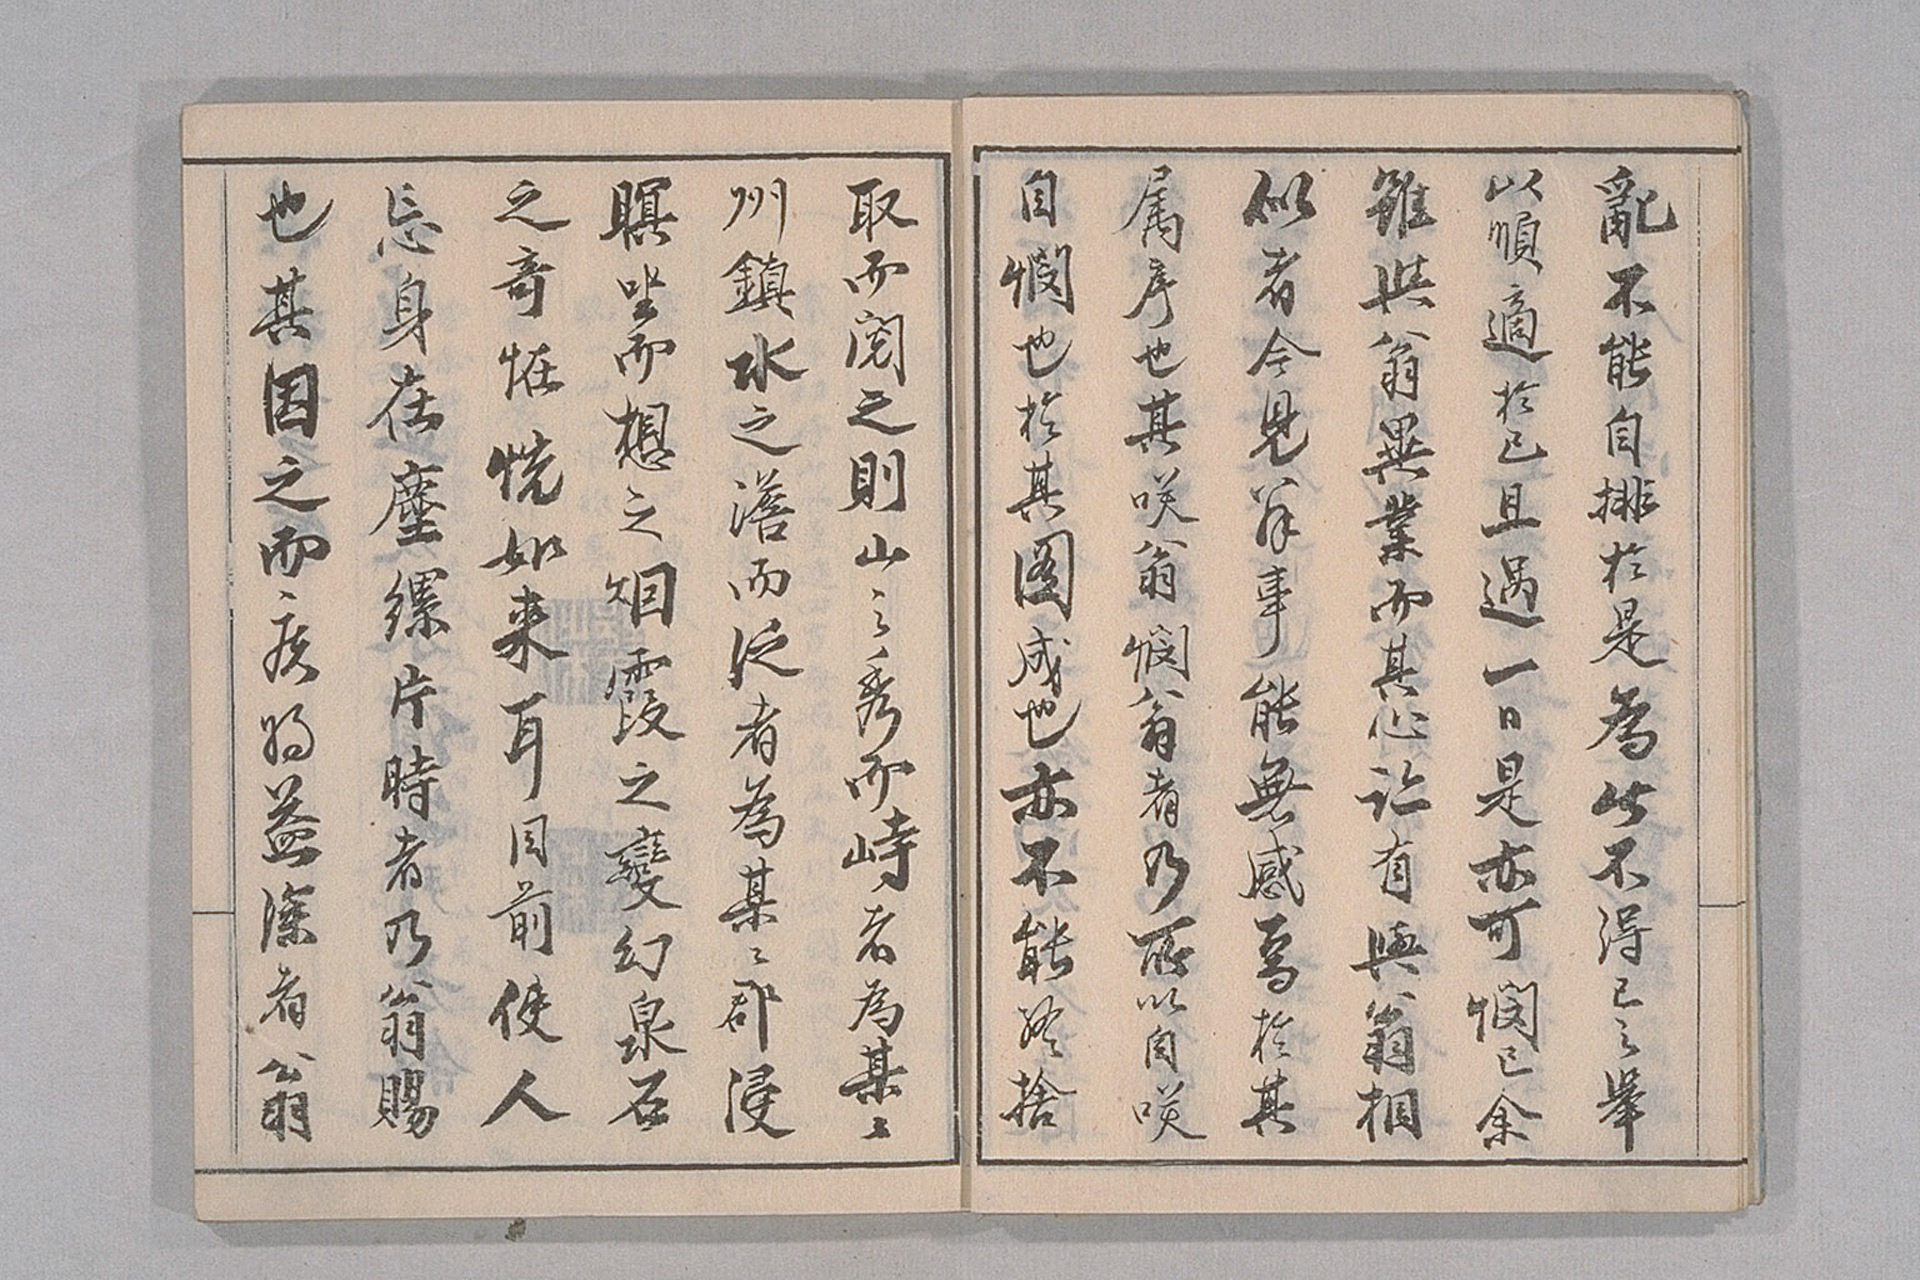 亂不能自排於是為此不得已之舉
以順適於己且過一日是亦可憫已余
雖與翁異業而其心跡有與翁相
似者今見此舉事能無感焉於其
属序也其咲翁憫翁者乃所以自咲
自憫也於其圖成也亦不能終捨
取而閲之則山之秀而峙者為某〻
州鎮水之澹而泛者為某〻郡浸
瞑坐而想之烟霞之變幻泉石
之奇恠恍如来耳目前使人
忘身在塵縲片時者乃翁賜
也其因之而疾为益深者翁